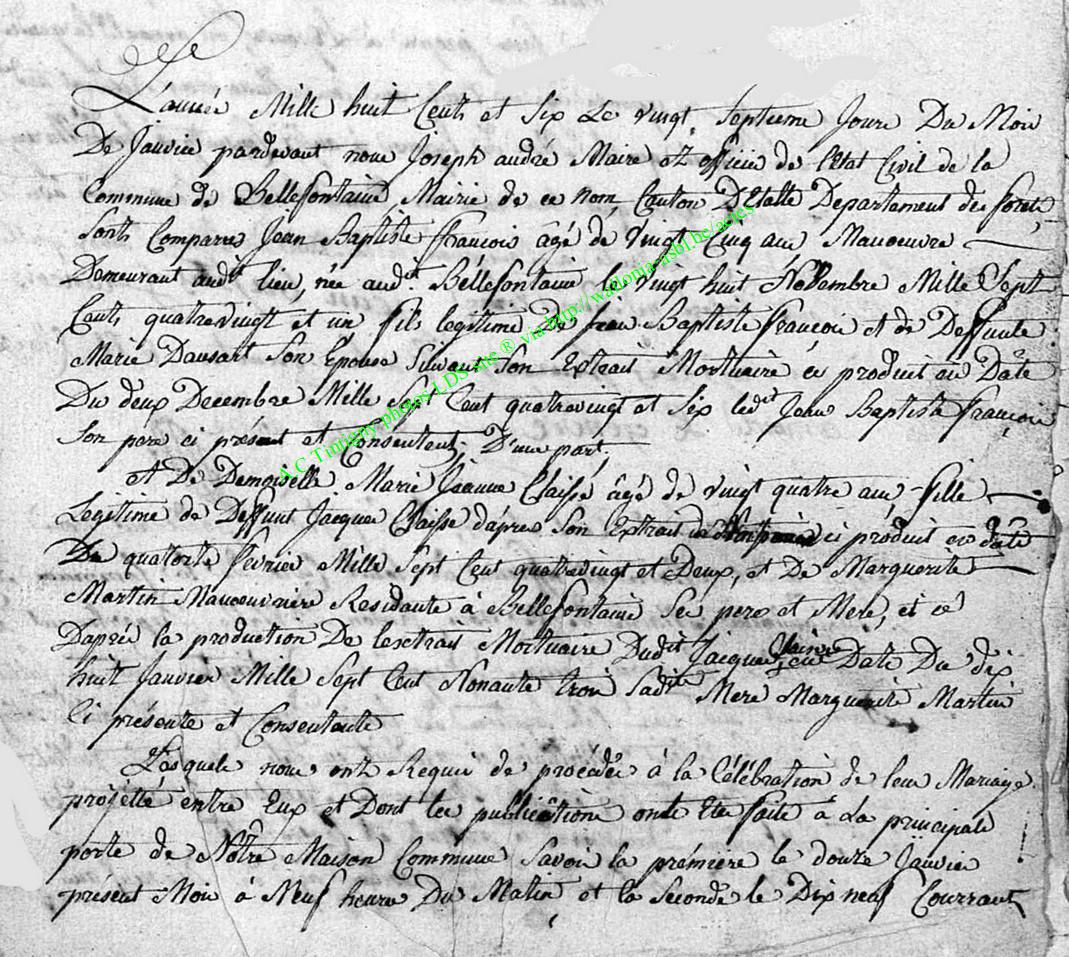 L'année Mille huit Cents et Six Le vingt Septieme Jour Du Mois
De Janvier pardevant nous Joseph andré Maire et officier de l'Etat Civil de la
Commune de Bellefontaine Mairie de ce nom Canton D'Etalle Departement des forets
Sont Comparus Jean Baptiste françois âgé de Vingt Cinq ans Manoeuvre
Demeurant audit lieu, née audit Béllefontaine le Vingt huit Novembre Mille Sept
Cents quatrevingt et un fils legitime De Jean Baptiste françois et de Deffunte
Marie Dausart Son Epouse Suivant Son Extrait Mortuaire ci produit en Date
Du deux Decembre Mille Sept Cent quatrevingt et Six ledit Jean Baptiste françois
Son pere ci présent et Consentent D'une part.
et De Demoiselle Marie Jeanne Claisse âgé de vingt quatre ans fille
Legitime de Deffunt Jacques Claisse d'apres Son Extrait de ci produit en date
De quatorze fevrier Mille Sept Cent quatrevingt et Deux, et De Marguerite
Martin Manoeuvriere Residante à Bellefontaine Ses pere et Mere, et ce
D'après la production De l'extrait Mortuaire Dudit Jacques Claisse en Date Du dix
huit Janvier Mille Sept Cent Nonante trois Sadite Mere Marguerite Martin
Ci présente et Consentente
Lesquels nous ont Requis de procéder à la Célébration de leur Mariage
projetté entre Eux et Dont les publications ont Eté faite à La principale
porte de Nôtre Maison Commune Savoir la prémière le douze Janvier
présent Mois à Neuf heures Du Matin et la Seconde le Dix neuf Courrant
A.C Tintigny photos LDS site ® via http://wallonia-asbl.be/actes